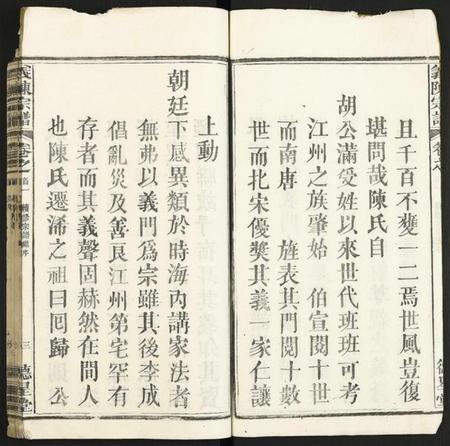 且千百不獲一二焉世風豈復
堪問哉陳氏自
胡公滿受姓以來世代班班可考
江州之族肇始 伯宣閱十世
而南唐 旌表其門閱十數
世而北宋優獎其義一家仁讓
上動
朝廷下感異類於時海內講家法者
無弗以義門為宗雖其後李成
倡亂災及善良江州第宅罕有
存者而其義聲固赫然在問人
也陳氏遷浠之祖曰囘歸 公
義陳宗譜
卷之首
三
德星堂